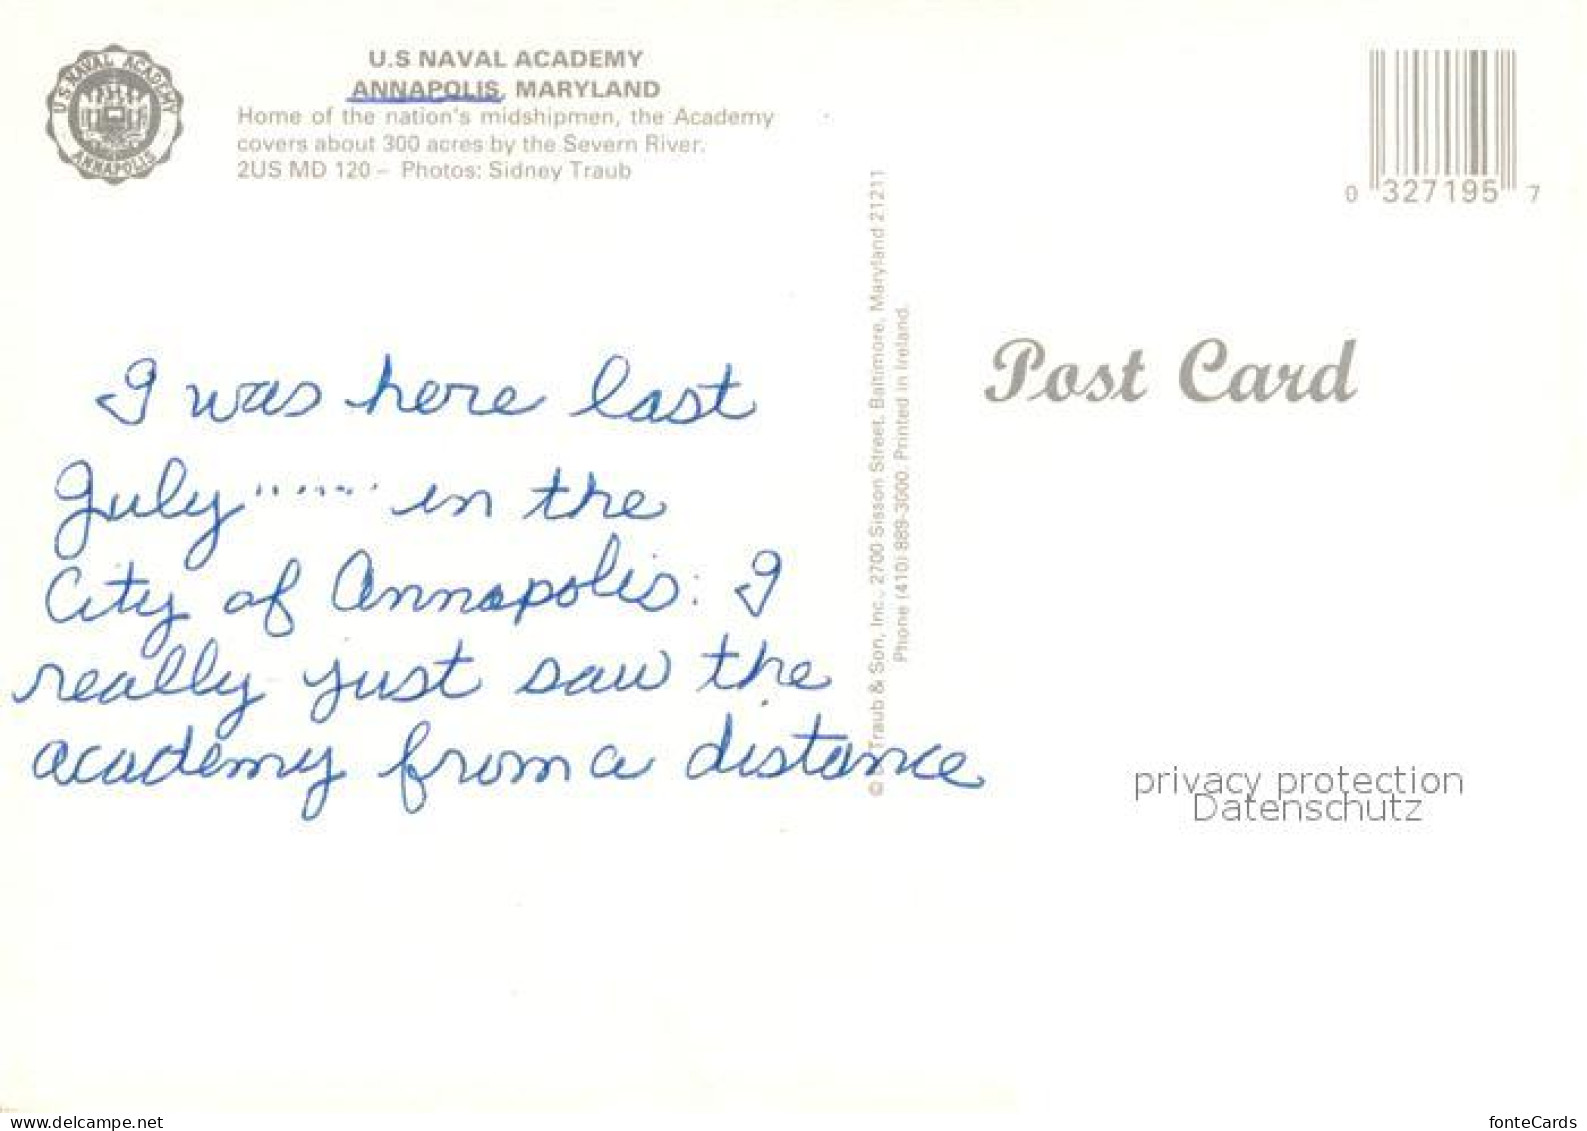 U.S NAVAL ACADEMY
ANNAPOLIS
U.S NAVAL ACADEMY
ANNAPOLIS, MARYLAND
Home of the nation's midshipmen, the Academy
covers about 300 acres by the Severn River.
2US MD 120 – Photos: Sidney Traub
I was here last
July ....... in the
City of Annapolis. I
really just saw the
academy from a distance
Traub & Son, Inc., 2700 Sisson Street, Baltimore, Maryland 21211
Phone (410) 889-3000. Printed in Ireland.
0 327195 7
Post Card
privacy protection
Datenschutz
www.delcampe.net
fonteCards